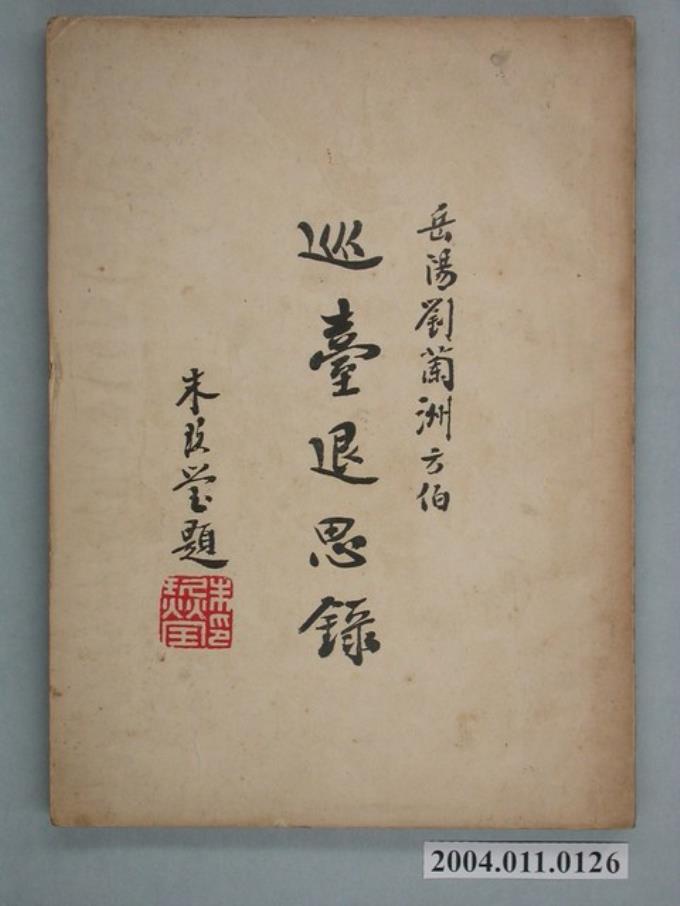 岳陽劉蘭洲方伯
巡臺退思錄
朱玖瑩題
2004.011.0126